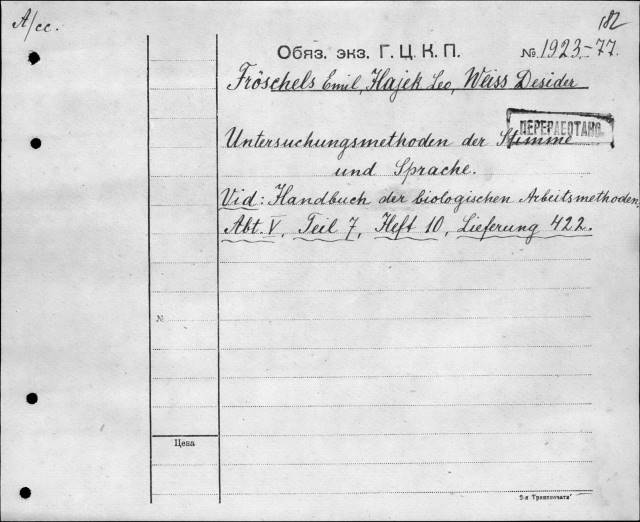 А/сс.
182
Обяз. экз. Г. Ц. К. П.
№ 1923-77.
Fröschels Emil, Hajek Leo, Weiss Desider
ПЕРЕРАБОТАНО
Untersuchungsmethoden der Stimme
und Sprache.
Vid: Handbuch der biologischen Arbeitsmethoden,
Abt. V, Teil 7, Heft 10, Lieferung 422.
№
Цена
2-я Транспечати